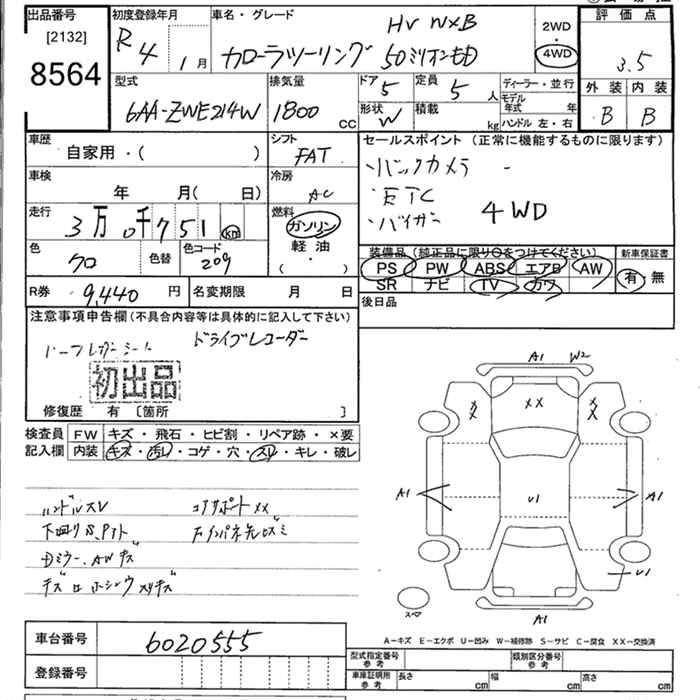 出品番号
[2132]
8564
初度登録年月
R 4 1月
車名・グレード
HV W×B
カローラツーリング 50ミリオンED
2WD
・
4WD
評価点
3.5
外装 内装
B B
型式
6AA-ZWE214W
排気量
1800 CC
ドア
5
定員
5 人
形状
W
積載
kg
ディーラー・並行
モデル年式 年
ハンドル 左・右
車歴
自家用・( )
シフト
FAT
車検
年 月( 日)
冷房
AC
走行
3万 0千 751 km
燃料
ガソリン
軽油
( ・ )
色
クロ
色替
色コード
209
R券 9,440 円
名変期限 月 日
セールスポイント (正常に機能するものに限ります)
・バックカメラ
・ETC
・バイザー
4WD
装備品(純正品に限り○をつけてください)
PS PW ABS エアB AW
SR ナビ TV カワ
新車保証書
有・無
後日品
注意事項申告欄(不具合内容等は具体的に記入して下さい)
ハーフレザーシート ドライブレコーダー
初出品
修復歴 有 [箇所 ]
検査員記入欄
FW キズ・飛石・ヒビ割・リペア跡・×要
内装 キズ・汚レ・コゲ・穴・スレ・キレ・破レ
ハンドルスレ コアサポートXX
下回りS,
Dミラー、AWキズ
A1 W2
XX XX XX
A1 U1 A1
U1
スペア
A1
A-キズ E-エクボ U-凹み W-補修跡 S-サビ C-腐食 XX-交換済
車台番号 6020555
登録番号
型式指定番号 参考
類別区分番号 参考
車庫証明用 参考
長さ cm 幅 cm 高さ cm